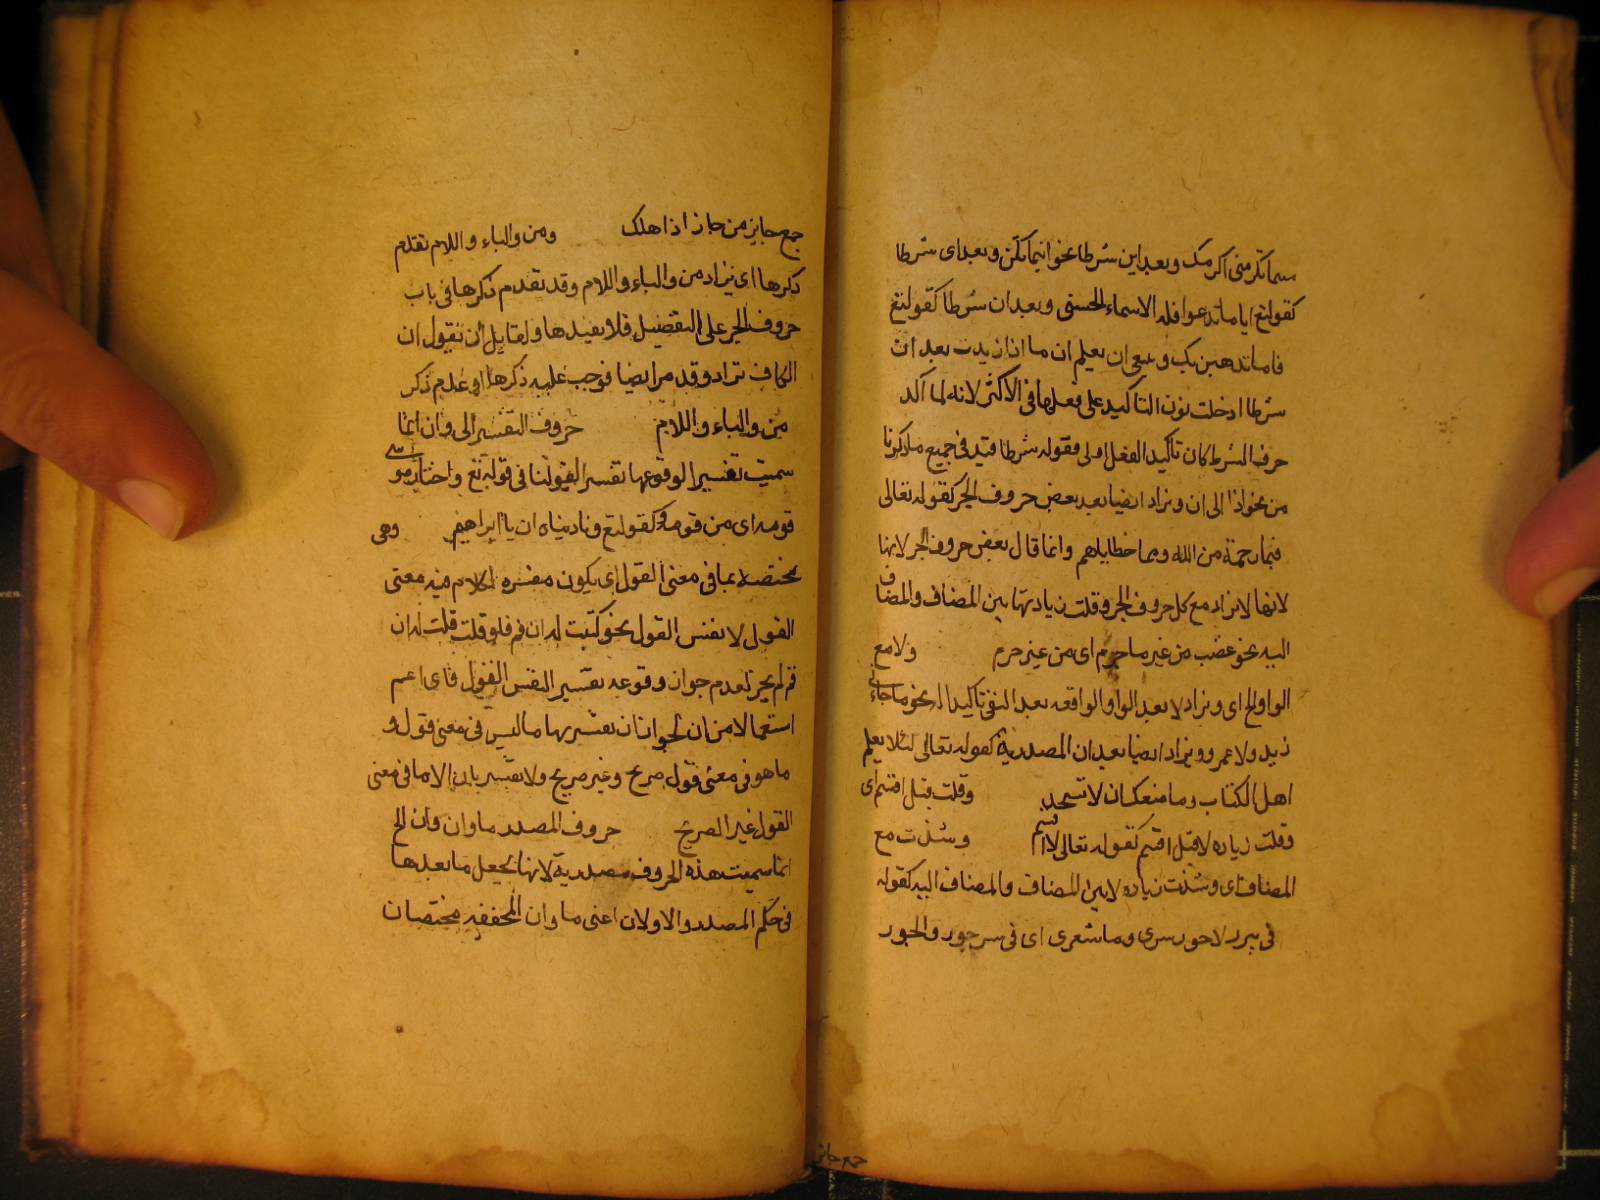 متى ما تكرمنى اكرمك وبعد اين شرطا نحو اينما تكن وبعد اى شرطا
كقوله تع ايا ما تدعوا فله الاسماء الحسنى وبعد ان شرطا كقوله تع
فاما تذهبن بك وينبغى ان يعلم ان ما اذا زيدت بعد ان
شرطا ادخلت نون التاكيد على فعلها فى الاكثر لانه لما اكد
حرف الشرط كان تاكيد الفعل اولى فقوله شرطا قيد فى جميع ما ذكرنا
من نحو اذا الى ان ويزاد ايضا بعد بعض حروف الجر كقوله تعالى
فبما رحمة من الله ومما خطاياهم وانما قال بعض حروف الجر لانها
لانها لا تزاد مع كل حروف الجر وقلت زيادتها بين المضاف والمضاف
اليه نحو غضب من غير ما جرم اى من غير جرم ولا مع
الواو الخ اى ويزاد لا بعد الواو الواقعه بعد النفى تاكيدا له نحو ما جاءنى
زيد ولا عمرو ويزاد ايضا بعد ان المصدرية كقوله تعالى لئلا يعلم
اهل الكتاب وما منعك ان لا تسجد وقلت قبل اقسم اى
وقلت زياده لا قبل اقسم كقوله تعالى لا اقسم وشذت مع
المضاف اى وشذت زياده لا بين المضاف والمضاف اليه كقوله
فى بير لا حور سرى وما شعرى اى فى بير حور والحور
جمع حاير
جمع حاير من حار اذا هلك ومن والباء واللام تقدم
ذكرها اى يزاد من والباء واللام وقد تقدم ذكرها فى باب
حروف الجر على التفضيل فلا نعيدها ولقايل ان يقول ان
الكاف تزاد وقد مر ايضا فوجب عليه ذكرها او عدم ذكر
من والباء واللام حروف التفسير اى وان انما
سميت تفسيرا لوقوعها تفسيرا لقولنا فى قوله تع واختار موسى
قومه اى من قومه وكقوله تع وناديناه ان يا ابراهيم وهى
مختصة بما فى معنى القول اى يكون مفسره كلام فيه معنى
القول لا نفس القول نحو كتبت له ان قم فلو قلت قلت له ان
قم لم يجز لعدم جواز وقوعه تفسير النفس القول فاى اعم
استعمالا من ان لجواز ان يفسر بها ما ليس فى معنى قول و
ما هو فى معنى قول صريح وغير صريح ولا يفسر بان الا ما فى معنى
القول غير الصريح حروف المصدر ما وان وان الخ
انما سميت هذه الحروف مصدرية لانها يجعل ما بعدها
فى حكم المصدر والاولان اعنى ما وان المخففه مختصان